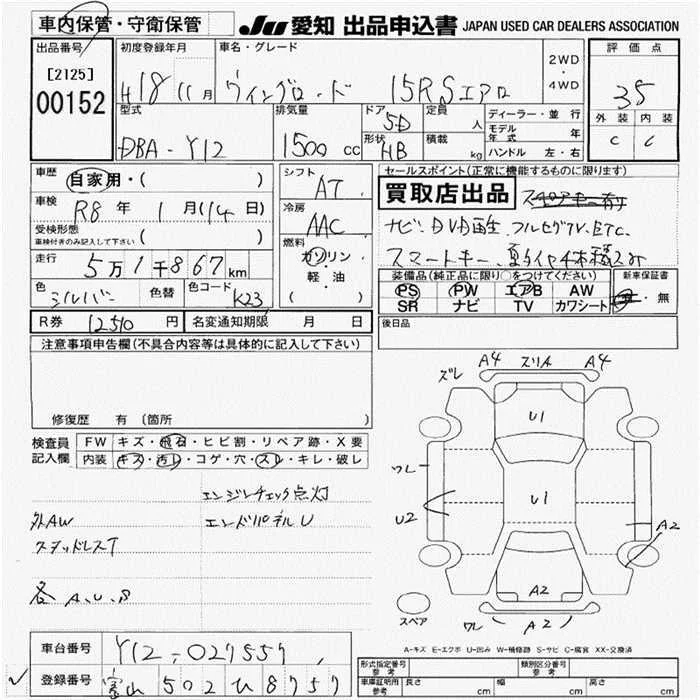 車内保管・守衛保管
JU 愛知 出品申込書 JAPAN USED CAR DEALERS ASSOCIATION
出品番号
[2125]
00152
初度登録年月
H18 11月
車名・グレード
ウィングロード 15RSエアロ
2WD・4WD
評価点
3.5
外装 内装
C C
型式
DBA-Y12
排気量
1500cc
ドア
5D
形状
HB
定員 人
積載 kg
ディーラー・並行
モデル年式 年
ハンドル 左・右
車歴
自家用・( )
車検
R8年 1月(14日)
受検形態
車検付きのみ記入して下さい ( )
走行
5万1千867km
色
シルバー
色替
色コード
K23
シフト
AT
冷房
AAC
燃料
ガソリン・軽・油
( )
セールスポイント(正常に機能するものに限ります)
買取店出品
ナビ、DVD再生、フルセグTV、ETC、
スマートキー、夏タイヤ4本積込み
装備品(純正品に限り○をつけてください)
PS PW エアB AW
SR ナビ TV カワシート
新車保証書
有・無
R券 12510円
名変通知期限 月 日
後日品
注意事項申告欄(不具合内容等は具体的に記入して下さい)
修復歴 有 (箇所
検査員記入欄
FW キズ・飛石・ヒビ割・リペア跡・X要
内装 キズ・汚レ・コゲ・穴・スレ・キレ・破レ
エンジンチェック点灯
外AW エンドパネルU
スタッドレスT
各 A、U、B
ズレ A4 スリA A4
U1
ワレ
U1
U2
A2
A2
スペア
ワレ A2
A-キズ E-エクボ U-凹み W-補修跡 S-サビ C-腐食 XX-交換済
車台番号
Y12-027557
登録番号
富山 502 ひ 8757
形式指定番号 参考
類別区分番号 参考
車庫証明用 参考
長さ cm
幅 cm
高さ cm